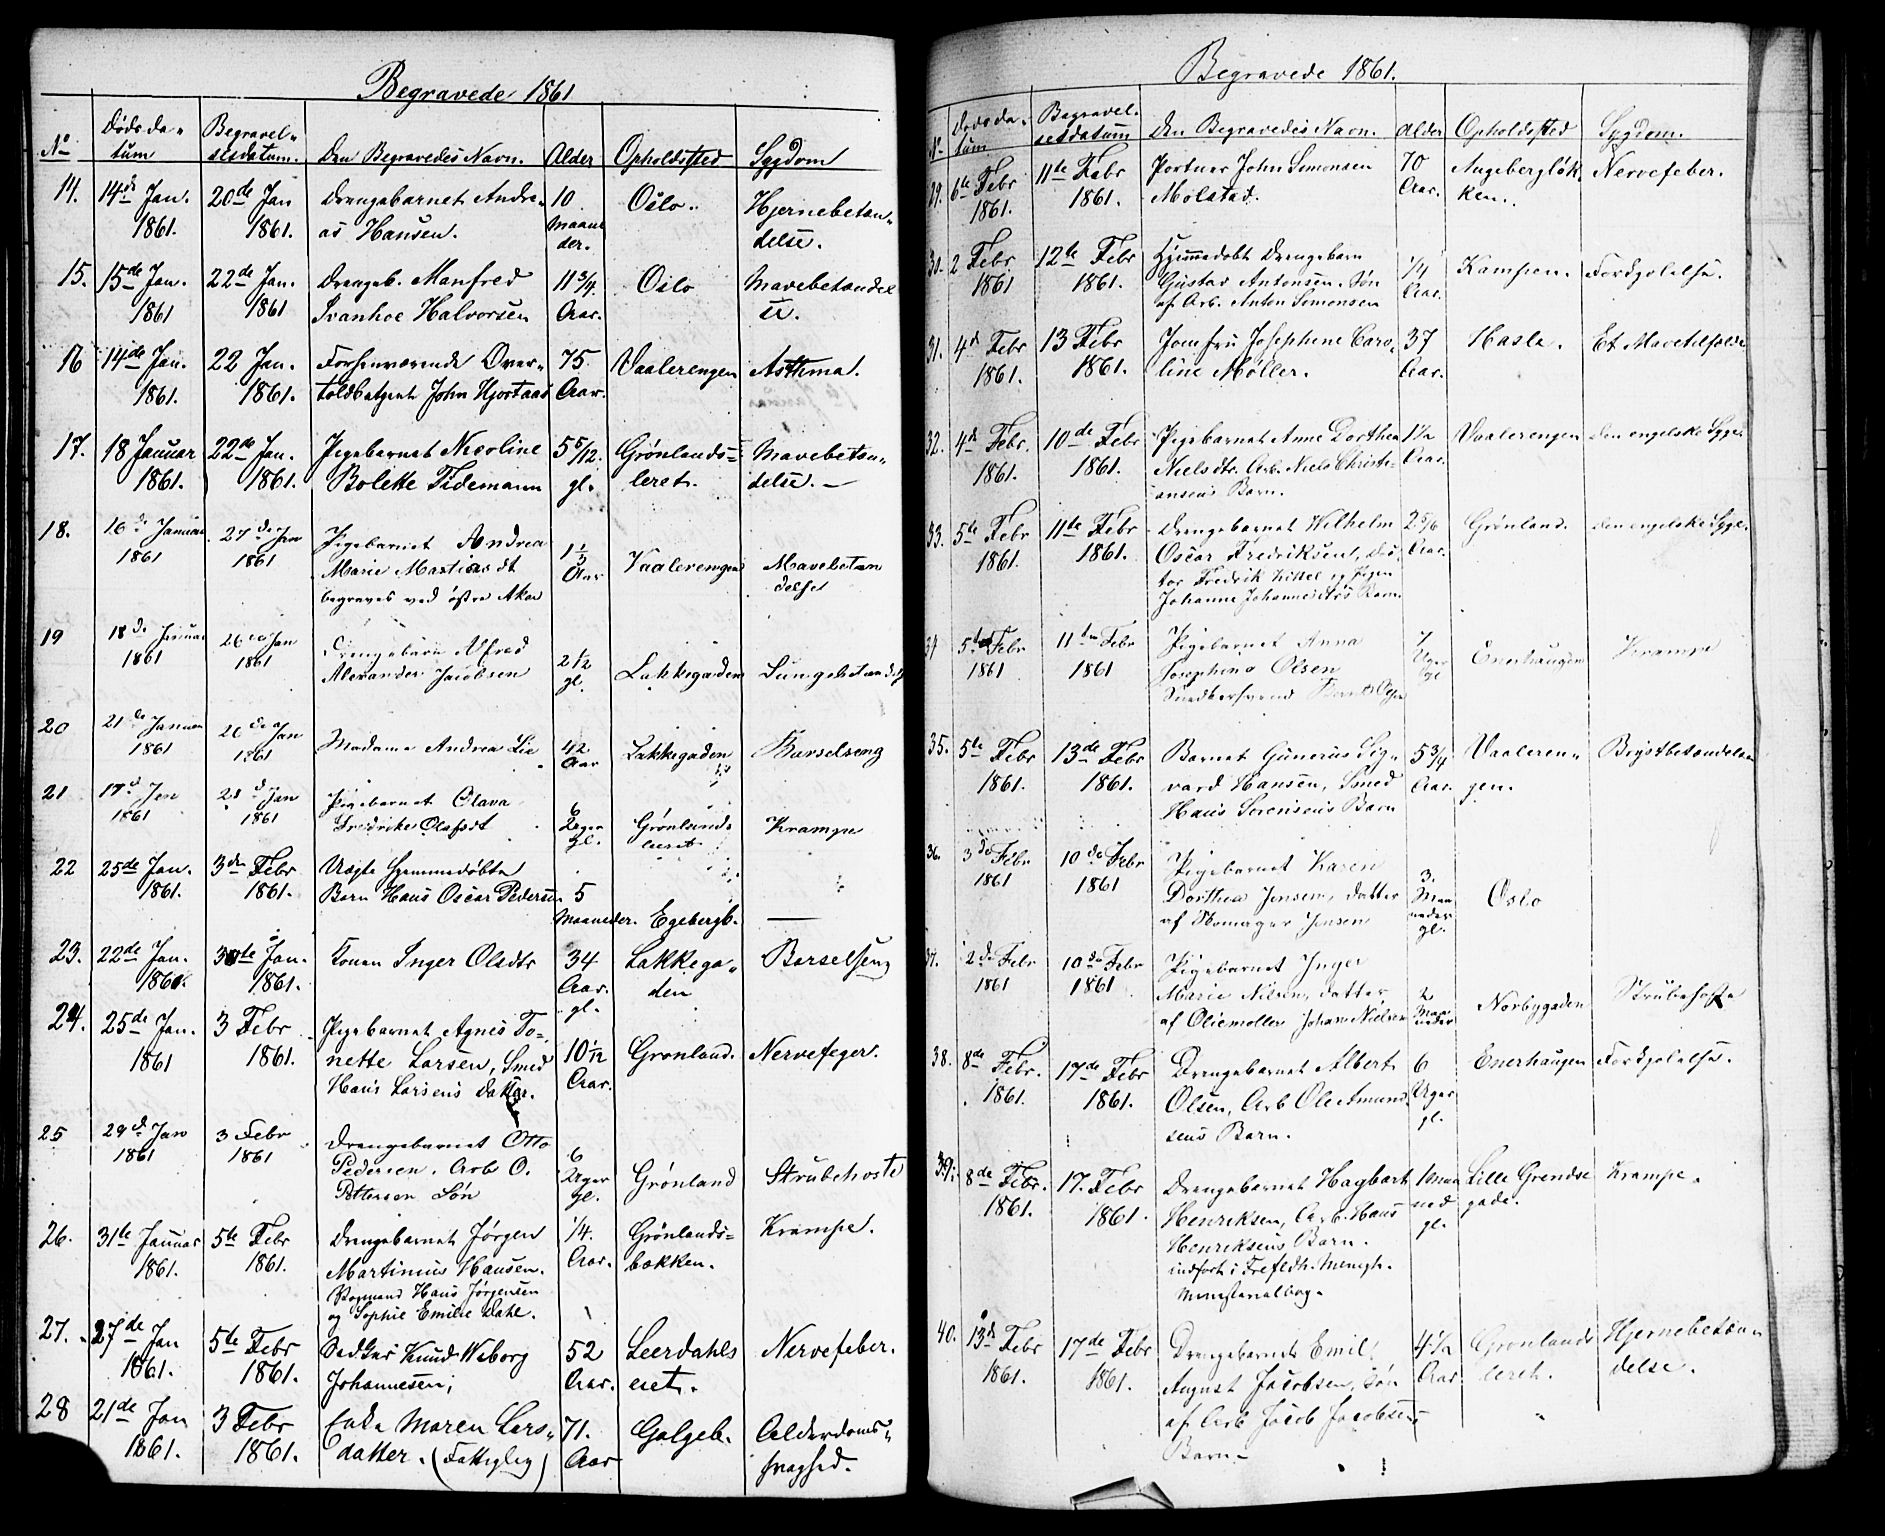 Begravede 1861
No Dødsda- Begravel- Den Begravedes Navn. Alder Opholdsted Sygdom
tum sesdatum.
14. 14de Jan. 20de Jan Drengebarnet Andre- 10 Oslo. Hjernebetæn-
1861. 1861. as Hansen. Maane delse.
der.
15. 15de Jan. 22de Jan. Drengeb. Manfred 11 3/4 Oslo Mavebetændel
1861 1861 Ivanhoe Halvorsen Aar. se.
16 14de Jan. 22 Jan. Forhenværende Over- 75 Vaalerengen Asthma.
1861. 1861. toldbetjent John Hjortaas Aar.
17. 18 Januar 22de Jan. Pigebarnet Nicoline 5 5/12 Grønlands= Mavebetæn-
1861. 1861. Bolette Tidemann gl. leret. delse. —
18. 16de Januar 27de Jan Pigebarnet Andrea 1 1/3 Vaalerengen Mavebetæn
1861 1861 Marie Mathiasdt Aar delse
begraves ved østre Aker
19 18de Januar 26de Jan Drengebarn Alfred 2 1/2 Lakkegaden Lungebetændelse
1861 1861 Alexander Jacobsen gl.
20 21de Januar 26de Jan Madame Andrea Lie 42 Lakkegaden Barselseng
1861 1861 Aar
21 17de Jan 28de Jan Pigebarnet Olava 6 Grønlands Krampe
1861 1861 Fredrikke Olafsdt Uger leret
gl.
22 25de Jan. 3die Febr Uægte hjemmedøbte
1861. 1861. Barn Hans Oscar Pedersen 5
Maaneder. Egebergb. —
23. 22de Jan. 30te Jan. Konen Inger Olsdtr 34 Lakkega- Barselseng
1861. 1861. Aar. den
gl.
24. 25de Jan. 3 Febr Pigebarnet Agnes To-
1861 1861. nette Larsen, Smed 10 1/12 Grønland. Nervefeger.
Hans Larsens Datter. Aar.
25 29de Jan 3 Febr Drengebarnet Otto
1861 1861 Pedersen, Arb O. 6 Grønland Strubehoste
Pettersen Søn Uger
gl.
26. 31te Januar 5te Febr Drengebarnet Jørgen 1/4 Grønlands= Krampe.
1861. 1861. Martinius Hansen. Aar. bakken.
Hans Jørgensen
og Sophie Emilie Dahl.
27. 27de Jan 5te Febr Knud Weborg 52 Leerdahls Nervefeber.
1861. 1861. Johannesen; Aar. eiet.
28 21de Jan 3 Febr Enke Maren Lars- 71. Galgeb. Alderdoms-
1861. 1861. datter. (Fattiglig) Aar svaghed.
Begravede 1861.
No Dødsda- Begravel- Den Begravedes Navn. Alder Opholdsted Sygdom.
tum sesdatum
29. 6te Febr 11te Febr Portner John Simonsen 70 Augebergløk Nervefeber.
1861. 1861. Molstad. Aar. ken.
30. 2 Febr 12te Febr Hjemmedøbt Drengebarn 1/4 Kampen. Forkjølelse.
1861 1861. Gustav Antonsen, Søn Aar.
af Arb. Anton Simonsen
31. 4de Febr 13 Febr Jomfru Josephine Caro- 37 Hasle. Et Mavetilfælde
1861. 1861. line Møller. Aar.
32. 4de Febr. 10de Febr Pigebarnet Anne Dorthea 1 1/2 Vaalerengen den engelske Syge.
1861. 1861. Nielsdtr. Arb. Niels Christi- Aar.
ansens Barn.
33. 5te Febr 11te Febr Drengebarnet Wilhelm 2 5/6 Grønland. den engelske Syge.
1861. 1861. Oscar Fredriksen, Aar.
Fredrik Kittel og Pigen
Johanne Johannesdtrs Barn.
34 5te Febr 11te Febr Pigebarnet Anna 7 Enerhaugen Krampe
1861 1861 Josephine Olsen Uger
Snedkersvend gl
35. 5te Febr 13de Febr Barnet Gunerius Sig- 5 3/4 Vaaleren- Brystbetændelse
1861. 1861. vard Hansen, Smed Aar. gen.
Hans Sørensens Barn
36. 3de Febr 10de Febr Pigebarnet Karen
1861 1861 Dorthea Jensen, datter 3. Oslo
af Skomager Jensen Maa
neder
gl.
37. 2de Febr 10de Febr Pigebarnet Inger
1861 1861 Marie Nilsen, datter 2 Norbygaden Strubehoste
af Oliemøller Johan Nielsen Maa
neder
38. 8de Febr. 17de Febr Drengebarnet Albert 6 Enerhaugen Forkjølelse.
1861. 1861. Olsen, Arb Ole Amund Uger
sens Barn. gl.
39. 8de Febr. 17. Febr Drengebarnet Hagbart 1 Maa Lille Grendse Krampe.
1861. 1861. Henriksen, Arb. Hans ned gade.
Henriksens Barn. gl.
indført i Trefoldh. Menigh.
Ministerialbog.
40. 13de Febr 17de Febr Drengebarnet Emil 4 1/2 Grønlands Hjernebetæn
1861. 1861. August Jacobsen, Søn Aar leret. delse.
af Arb Jacob Jacobsens
Barn.